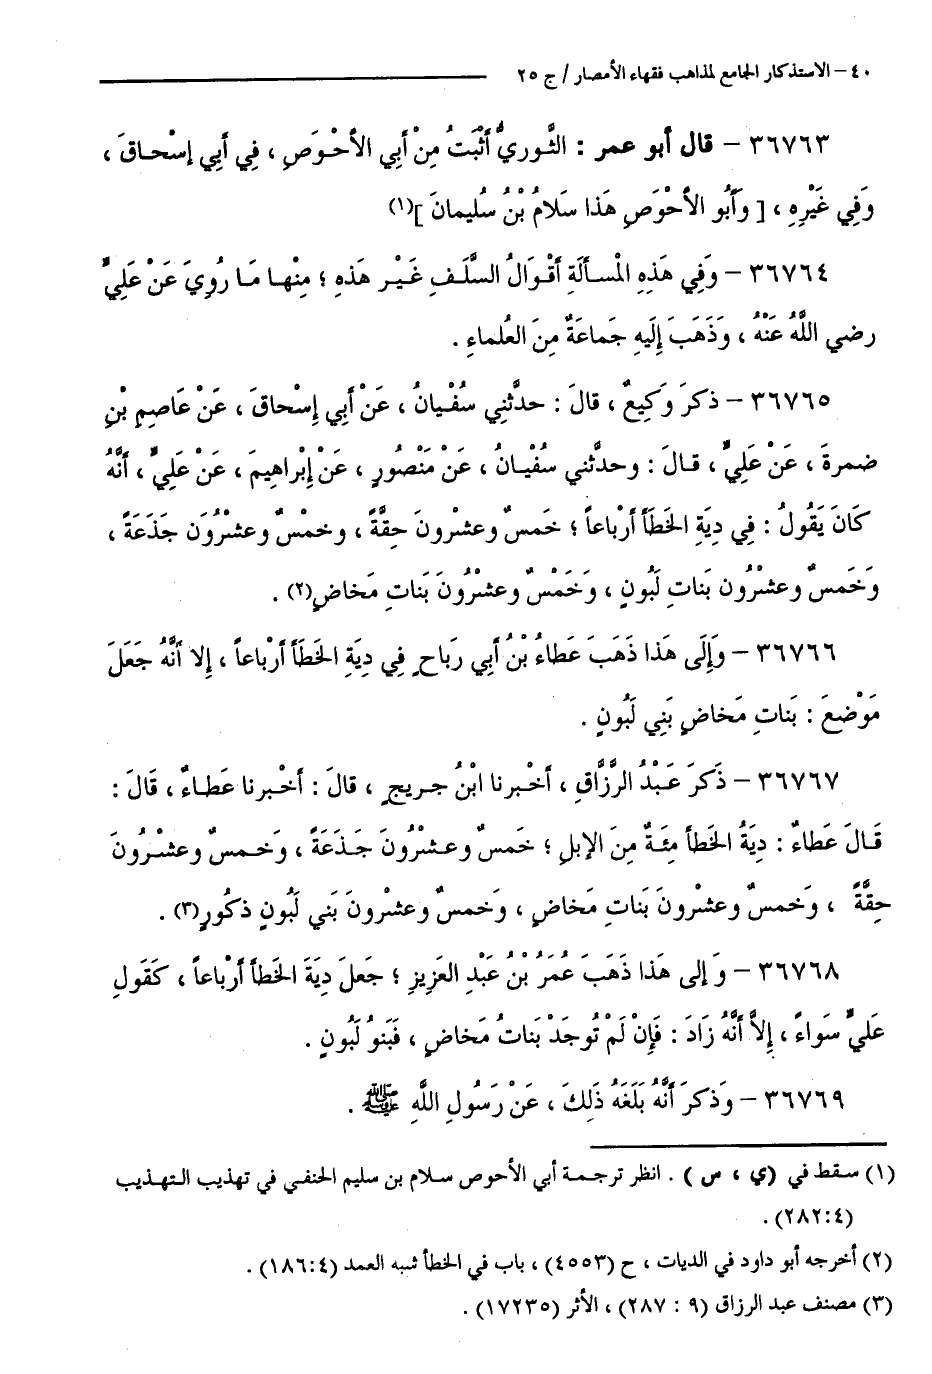 ٤٠ – الاستذكار الجامع لمذاهب فقهاء الأمصار / ج ٢٥
٣٦٧٦٣ – قال أبو عمر : الثَّوريُّ أثْبَتُ مِنْ أبِي الأحْوَصِ ، فِي أبِي إسْحاقَ ،
وَفِي غَيْرِهِ ، [ وَأبُو الأحْوَصِ هَذا سَلامُ بْنُ سُليمانَ ](١)
٣٦٧٦٤ – وَفِي هَذِهِ المْسألَةِ أقْوَالُ السَّلَفِ غَيْر هَذهِ ؛ مِنْها مَا رُوِيَ عَنْ عَلِيٍّ
رضي اللَّهُ عَنْهُ ، وَذَهَبَ إِلَيهِ جَماعَةٌ مِنَ العُلماءِ .
٣٦٧٦٥ – ذكرَ وَكِيعٌ ، قالَ : حدَّثنِي سُفْيانُ ، عَنْ أبِي إِسْحاقَ ، عَنْ عَاصِمِ بْنِ
ضمرةَ ، عَنْ عَلِيٍّ ، قالَ : وحدثَّني سُفْيانُ ، عَنْ مَنْصُورٍ ، عَنْ إِبْراهِيمَ ، عَنْ عَلِيٍّ ، أنَّهُ
كَانَ يَقُولُ : فِي دِيَةِ الخَطَأَ أرْباعاً ؛ خَمسٌ وعشْرونَ حِقَّةً ، وخمْسٌ وعشْرُونَ جَذَعَةً ،
وَخَمسٌ وعشْرُون بَناتِ لَبُونٍ ، وَخَمْسٌ وعشْرُونَ بَنَاتِ مَخاضٍ(٢) .
٣٦٧٦٦ – وَإِلَى هَذا ذَهَبَ عَطاءُ بْنُ أبِي رَباحٍ فِي دِيَةِ الخَطَأ أرْباعاً ، إِلا أنَّهُ جَعَلَ
مَوْضعَ : بَناتِ مَخاضٍ بَنِي لَبُونٍ .
٣٦٧٦٧ – ذَكَرَ عَبْدُ الرَّزَّاقِ ، أخْبرنا ابْنُ جريجٍ ، قالَ : أخْبرنا عَطاءٌ ، قَالَ :
قَالَ عَطاءٌ : دِيَةُ الخَطأ مِئَةٌ مِنَ الإبلِ ؛ خَمسٌ وعشْرُونَ جَذَعَةً ، وَخمسٌ وعشْرُونَ
حِقَّةً ، وَخمسٌ وعشْرونَ بَناتِ مَخاضٍ ، وَخمسٌ وعشْرونَ بَنِي لَبُونٍ ذكُورٍ(٣) .
٣٦٧٦٨ – وَإلى هَذا ذَهَبَ عُمَرُ بْنُ عَبْدِ العَزِيزِ ؛ جَعلَ دِيَةَ الخَطأ أرْباعاً ، كَقَولِ
عَليٍّ سَواءً ، إِلاَّ أنَّهُ زَادَ : فَإِنْ لَمْ تُوجَدْ بَناتُ مَخاضٍ ، فَبَنُو لَبُونٍ .
٣٦٧٦٩ – وَذكرَ أنَّهُ بَلَغَهُ ذَلِكَ ، عَنْ رَسُولِ اللَّهِ ﷺ .
(١) سقط في (ي ، س ) . انظر ترجمة أبي الأحوص سلام بن سليم الحنفي في تهذيب التهذيب
(٤:٢٨٢) .
(٢) أخرجه أبو داود في الديات ، ح (٤٥٥٣) ، باب في الخطأ شبه العمد (٤:١٨٦) .
(٣) مصنف عبد الرزاق (٩ : ٢٨٧) ، الأثر (١٧٢٣٥) .